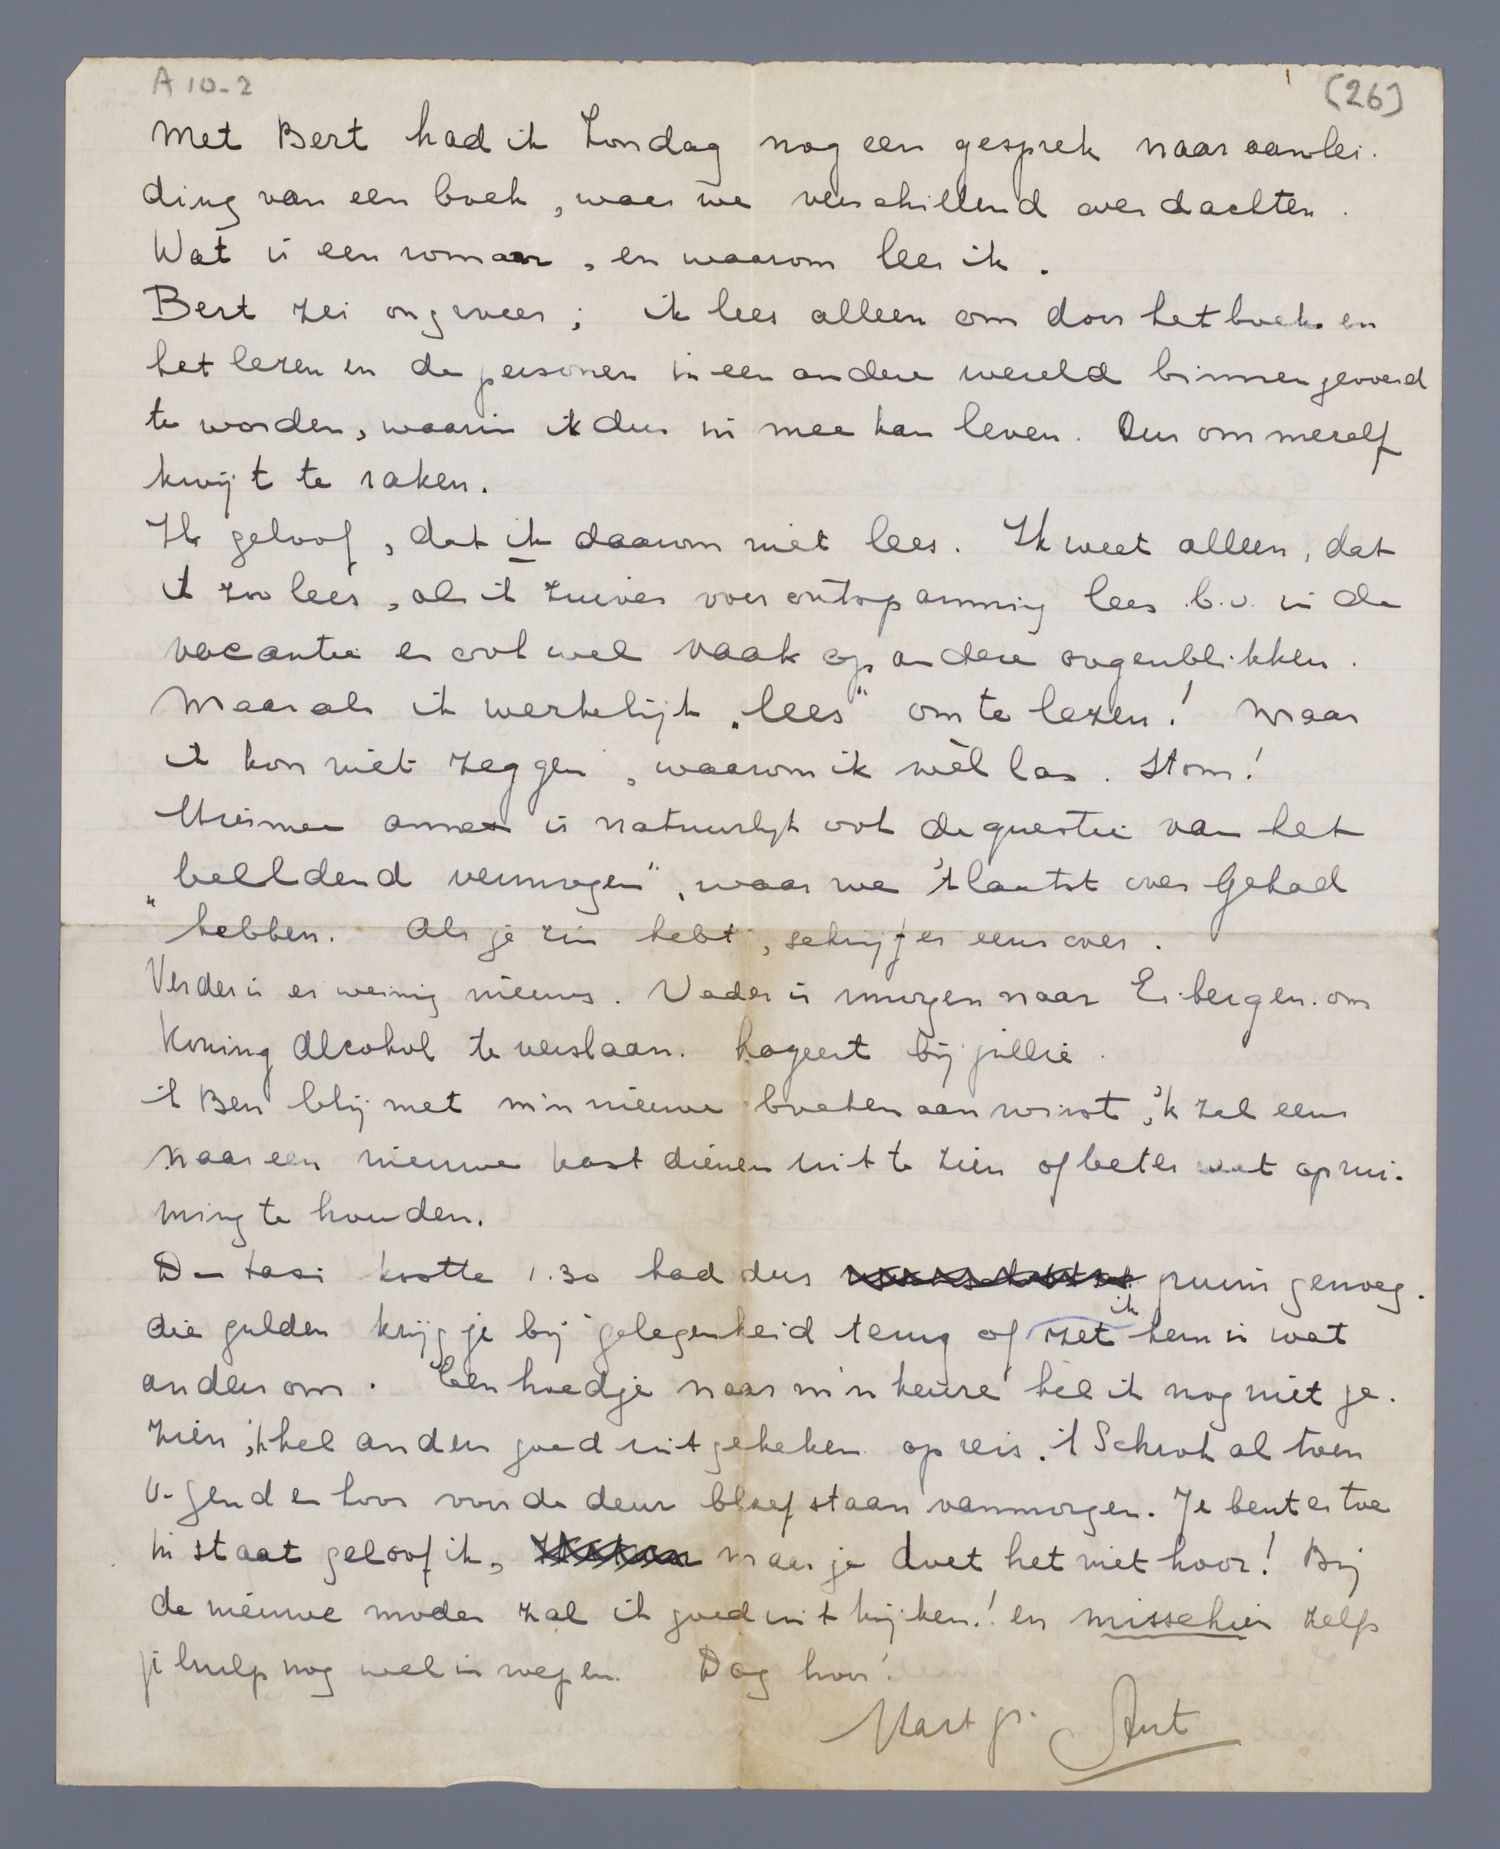 A 10-2 (26)
Met Bert had ik Zondag nog een gesprek naar aanlei-
ding van een boek, waar we verschillend over dachten.
Wat is een roman, en waarom lees ik.
Bert zei ongeveer; ik lees alleen om door het boek en
het lezen en de personen in een andere wereld binnengevoerd
te worden, waarin ik dus in mee kan leven. Dus om mezelf
kwijt te raken.
Ik geloof, dat ik daarom niet lees. Ik weet alleen, dat
ik zoo lees, als ik zuiver voor ontspanning lees b.v. in de
vacantie en ook wel vaak op andere oogenblikken.
Maar als ik werkelijk „lees" om te lezen! Maar
ik kon niet zeggen, waarom ik wèl las. Stom!
annex is natuurlijk ook de questie van het
„beeldend vermogen", waar we 't laatst over gehad
hebben. Als je zin hebt, schrijf er eens over.
Verder is er weinig nieuws. Vader is morgen naar Eibergen om
Koning Alcohol te verslaan. Logeert bij jullie.
ik Ben blij met m'n nieuwe boekenaanwinst, 'k zal eens
naar een nieuwe kast dienen uit te zien of beter wat oprui-
ming te houden.
De taxi kostte 1.30 had dus ruim genoeg.
die gulden krijg je bij gelegenheid terug of zet ik hem in wat
anders om. Een hoedje naar m'n keuze heb ik nog niet ge-
zien, 'k heb anders goed uitgekeken op reis. 'k Schrok al toen
voor de deur bleef staan vanmorgen. Je bent er toe
in staat geloof ik, maar je doet het niet hoor! Bij
de nieuwe mode zal ik goed uitkijken! en misschien zelfs
je hulp nog wel in roepen. Dag hoor!